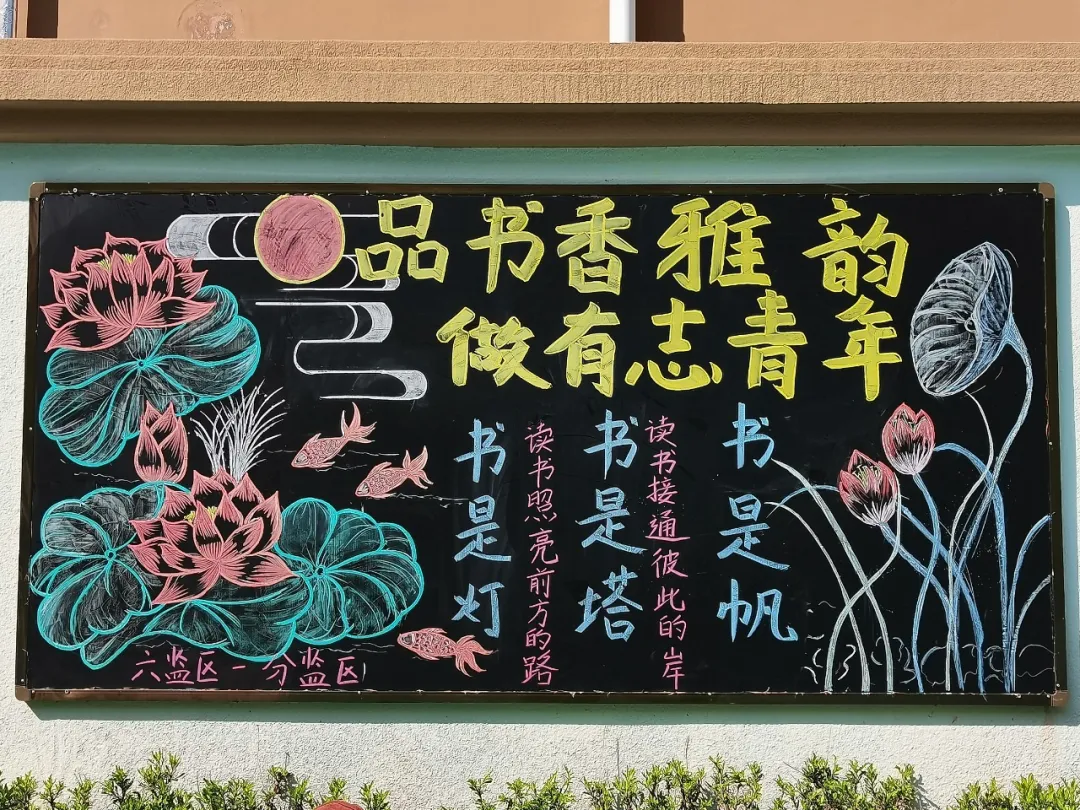 品书香雅韵
做有志青年
书是灯
读书照亮前方的路
书是塔
读书接通彼此的岸
书是帆
六监区一分监区